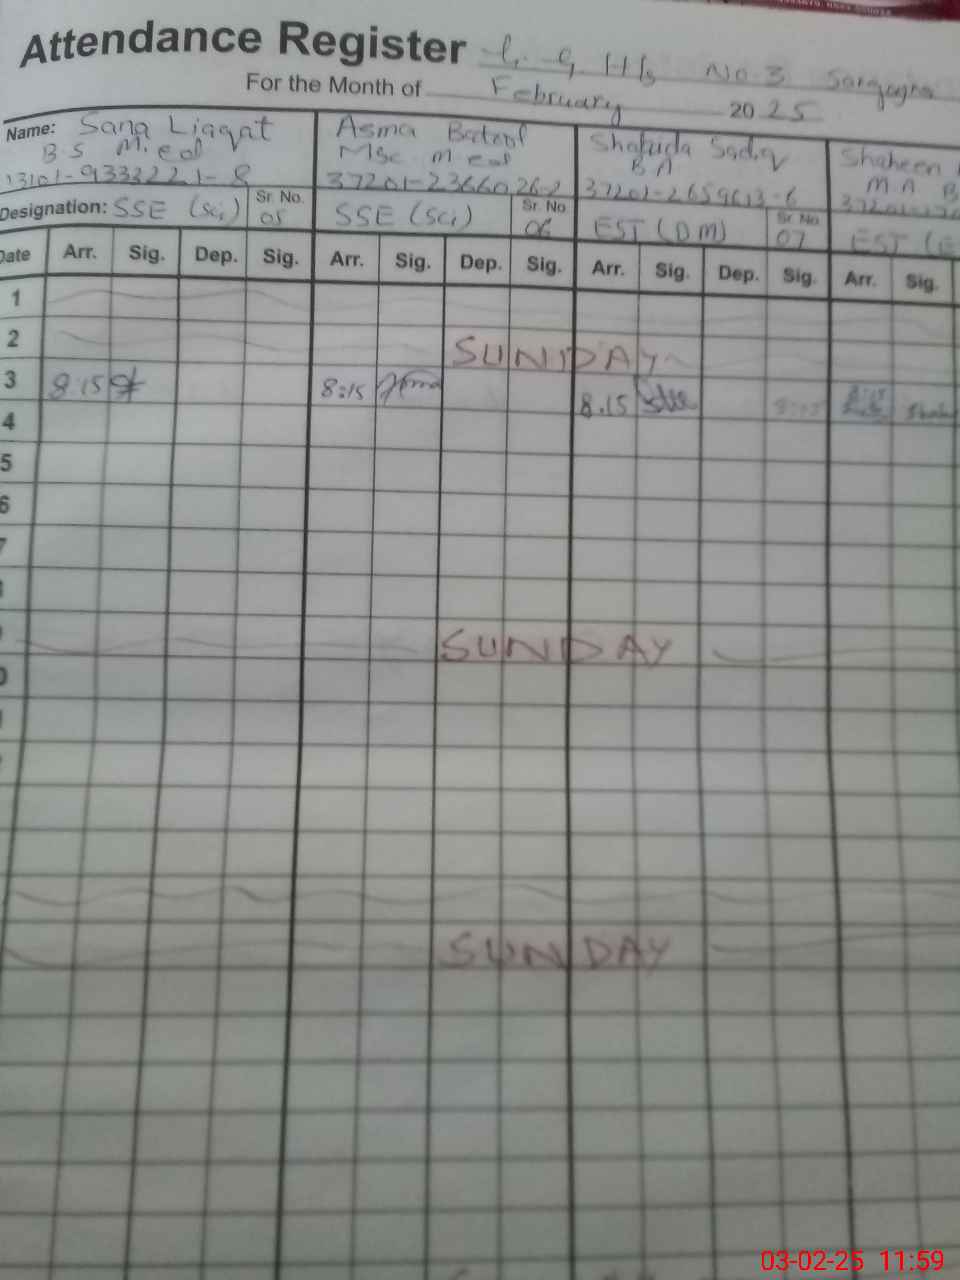 Attendance Register G. G. H/S No. 3
For the Month of February 2025
Name: Sana Liaqat Asma Batool Shahida Sadiq Shaheen
B.S M.ed Msc M ed B A M A B
13101-9333221-8 37201-2366026-2 37201-2659613-6
Designation: SSE (Sci) Sr. No. 05 SSE (Sci) Sr. No 06 EST (DM) Sr. No 07 EST (
Date Arr. Sig. Dep. Sig. Arr. Sig. Dep. Sig. Arr. Sig. Dep. Sig. Arr. Sig.
1
2 SUNDAY
3 8.15 8:15 8.15
4
5
6
7
SUNDAY
SUNDAY
03-02-25 11:59